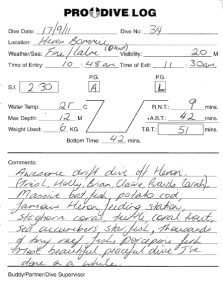 PRO DIVE LOG
Dive Date: 17/9/11 Dive No: 34
Location: Heron Bommie
Weather/Sea: Fine/Calm Visibility: 20 M
Time of Entry: 10:48am Time of Exit: 11:30am
P.G. P.G.
S.I. 2 30 A L
Water Temp: 21 C R.N.T.: 9 mins.
Max Depth: 12 M +A.B.T.: 42 mins.
Weight Used: 6 KG T.B.T.: 51 mins.
Bottom Time: 42 mins.
Comments:
Awesome drift dive off Heron.
Trish, Holly, Brian, Claire,
Massive fish, potato cod,
famous Heron feeding station,
staghorn coral, turtle, coral trout,
sea cucumbers, starfish, thousands
of tiny reef fish, porcupine fish
Most beautiful peaceful dive I've
done in a while.
Buddy/Partner/Dive Supervisor